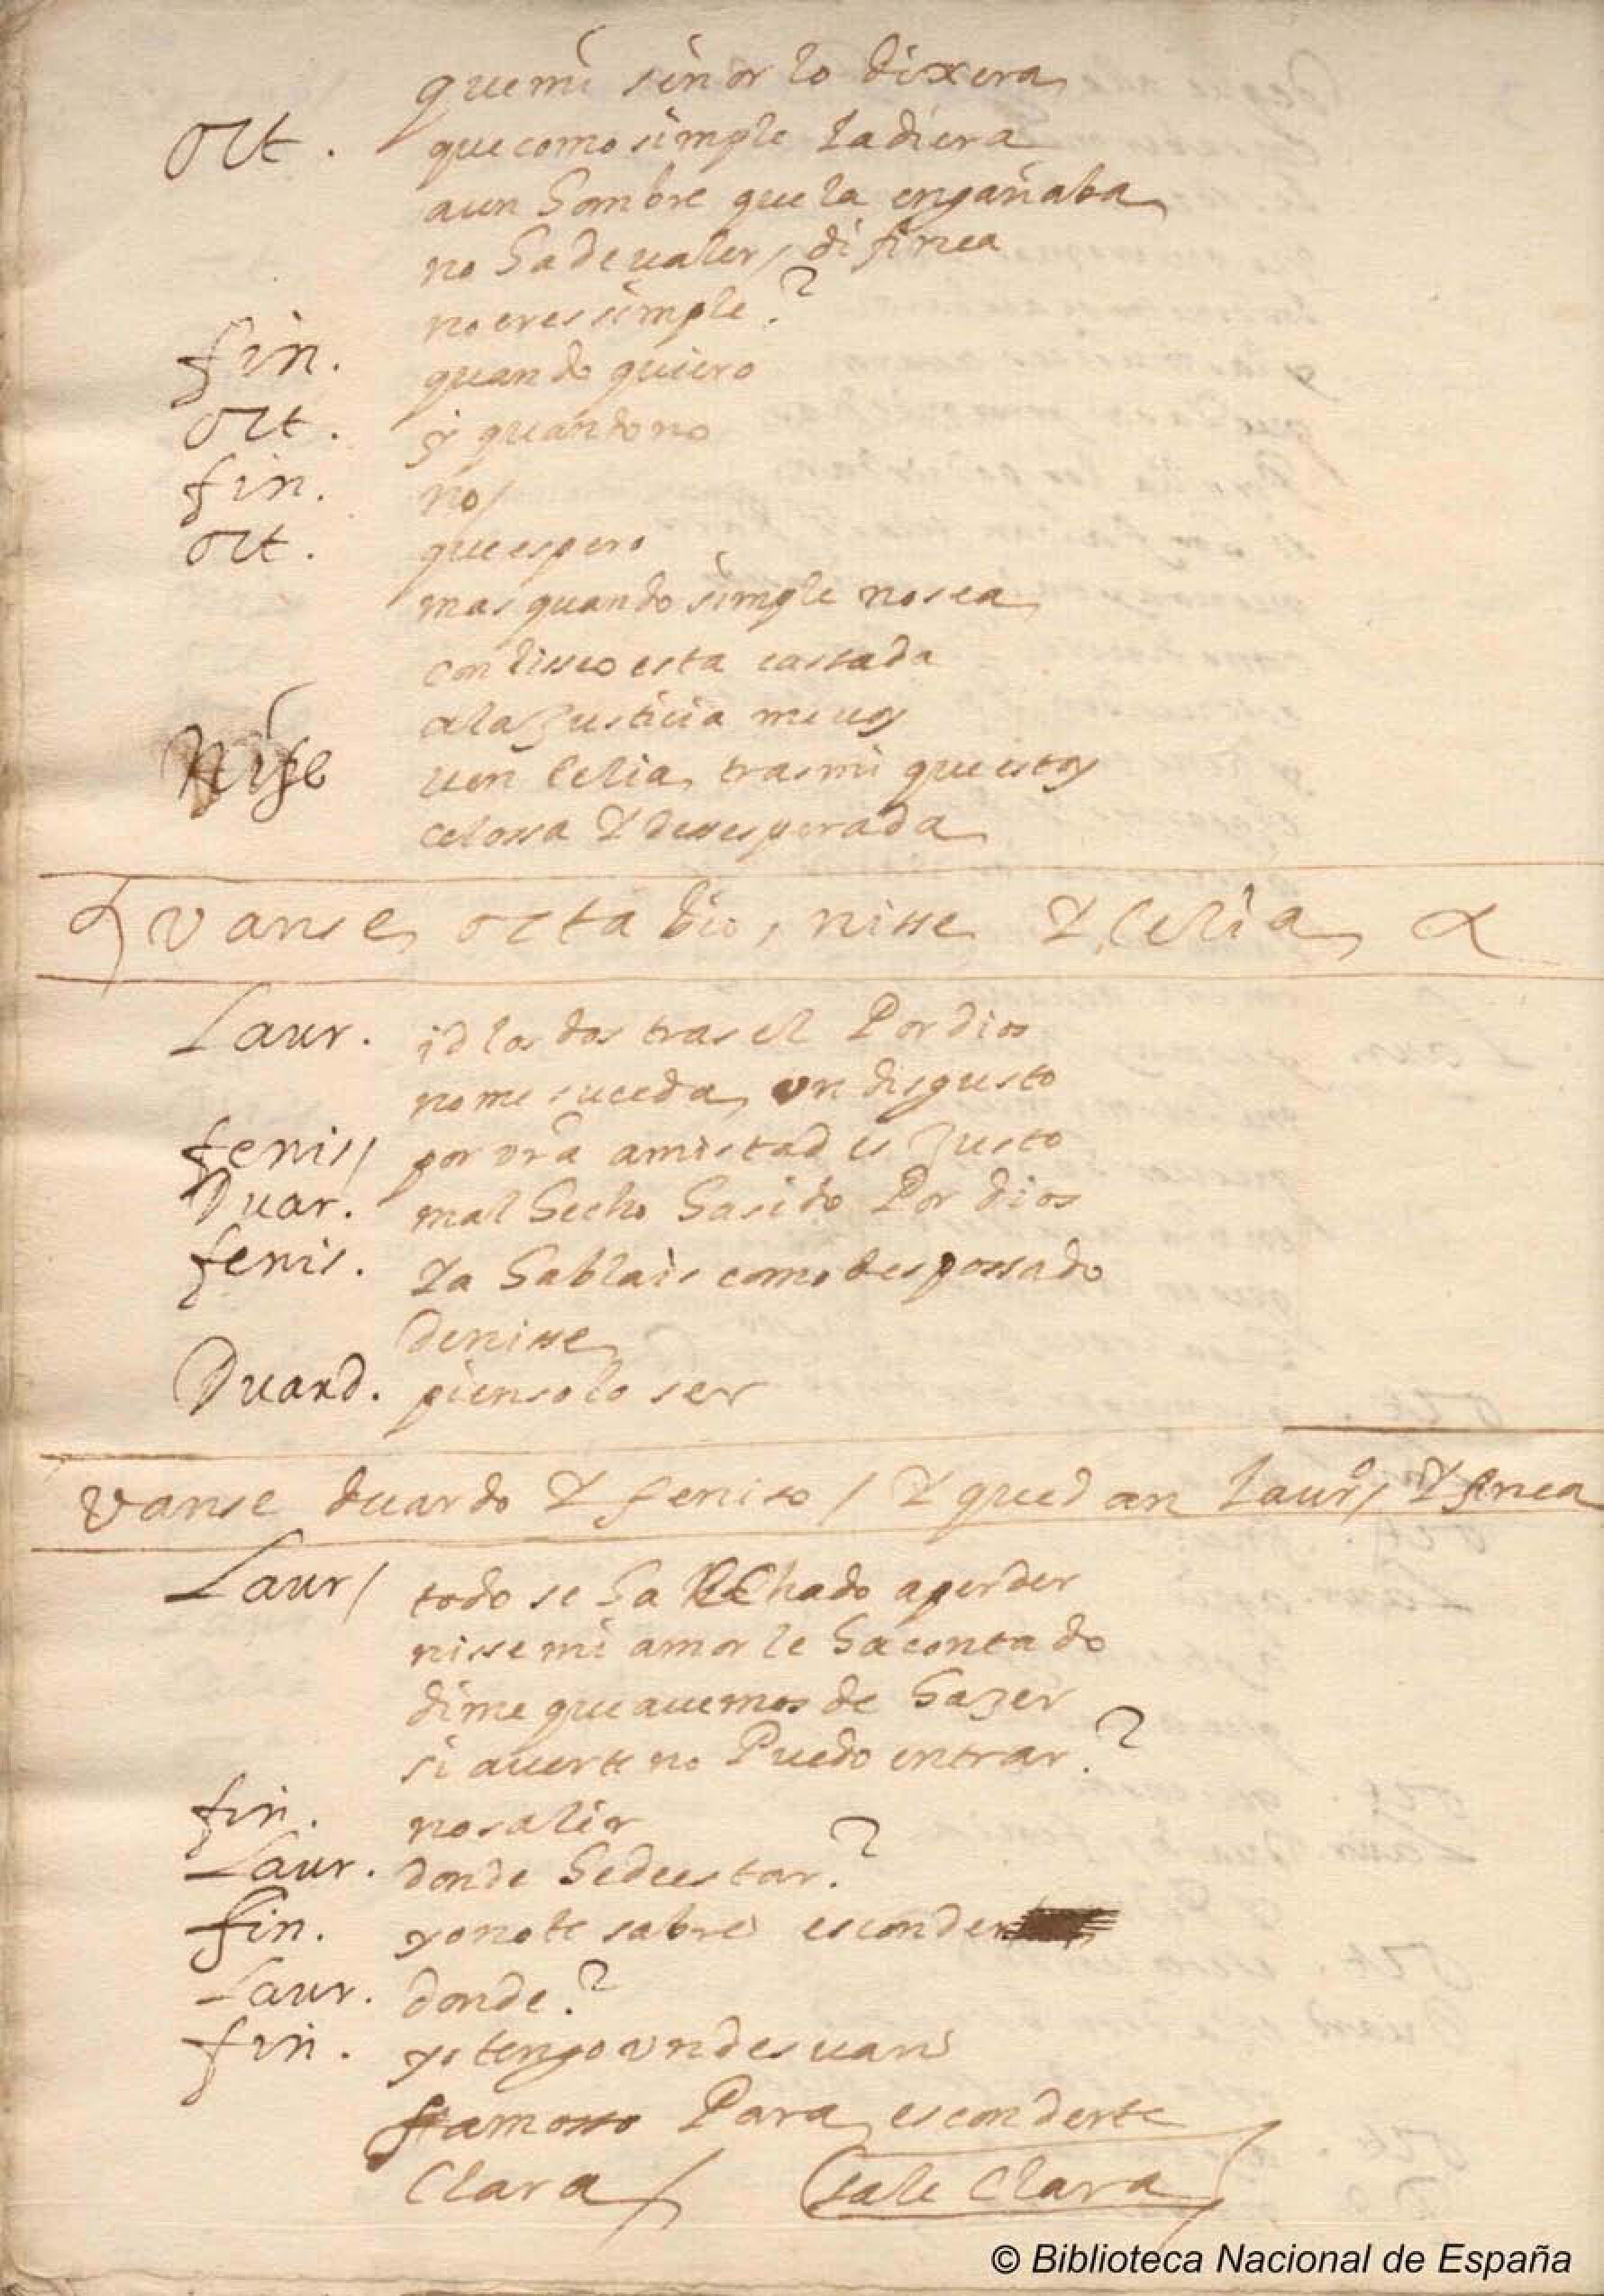 que mi señor lo dixera
Ott. que como simple la diera
a un hombre que la engañaba
no ha de valer / di finea
no eres simple?
fin. quando quiero
Ott. y quando no
fin. no /
Ott. que espero
mas quando simple no sea
con liseo esta cassada
a la Justicia me voy
Nise ven Celia, tras mi que estoy
celossa Y desesperada
Vanse, octabio, nisse Y Celia
Laur. id los dos tras el Por dios
no me suceda, un disgusto
fenis / por vrā amistad es Justo
Duar. mal hecho ha sido Por dios
fenis. Ya hablais como desposado
de nisse
Duard. pienso lo ser
Vanse duardo Y feniso / Y quedan Laurº / Y finea
Laur / todo se ha hechado a perder
nisse mi amor le ha contado
dime que auemos de hazer
si a verte no Puedo entrar?
fin. no salir
Laur. donde he de estar?
fin. yo no te sabre esconder
Laur. donde?
fin. yo tengo un desuan
famosso Para, esconderte
Clara / sale Clara
© Biblioteca Nacional de España